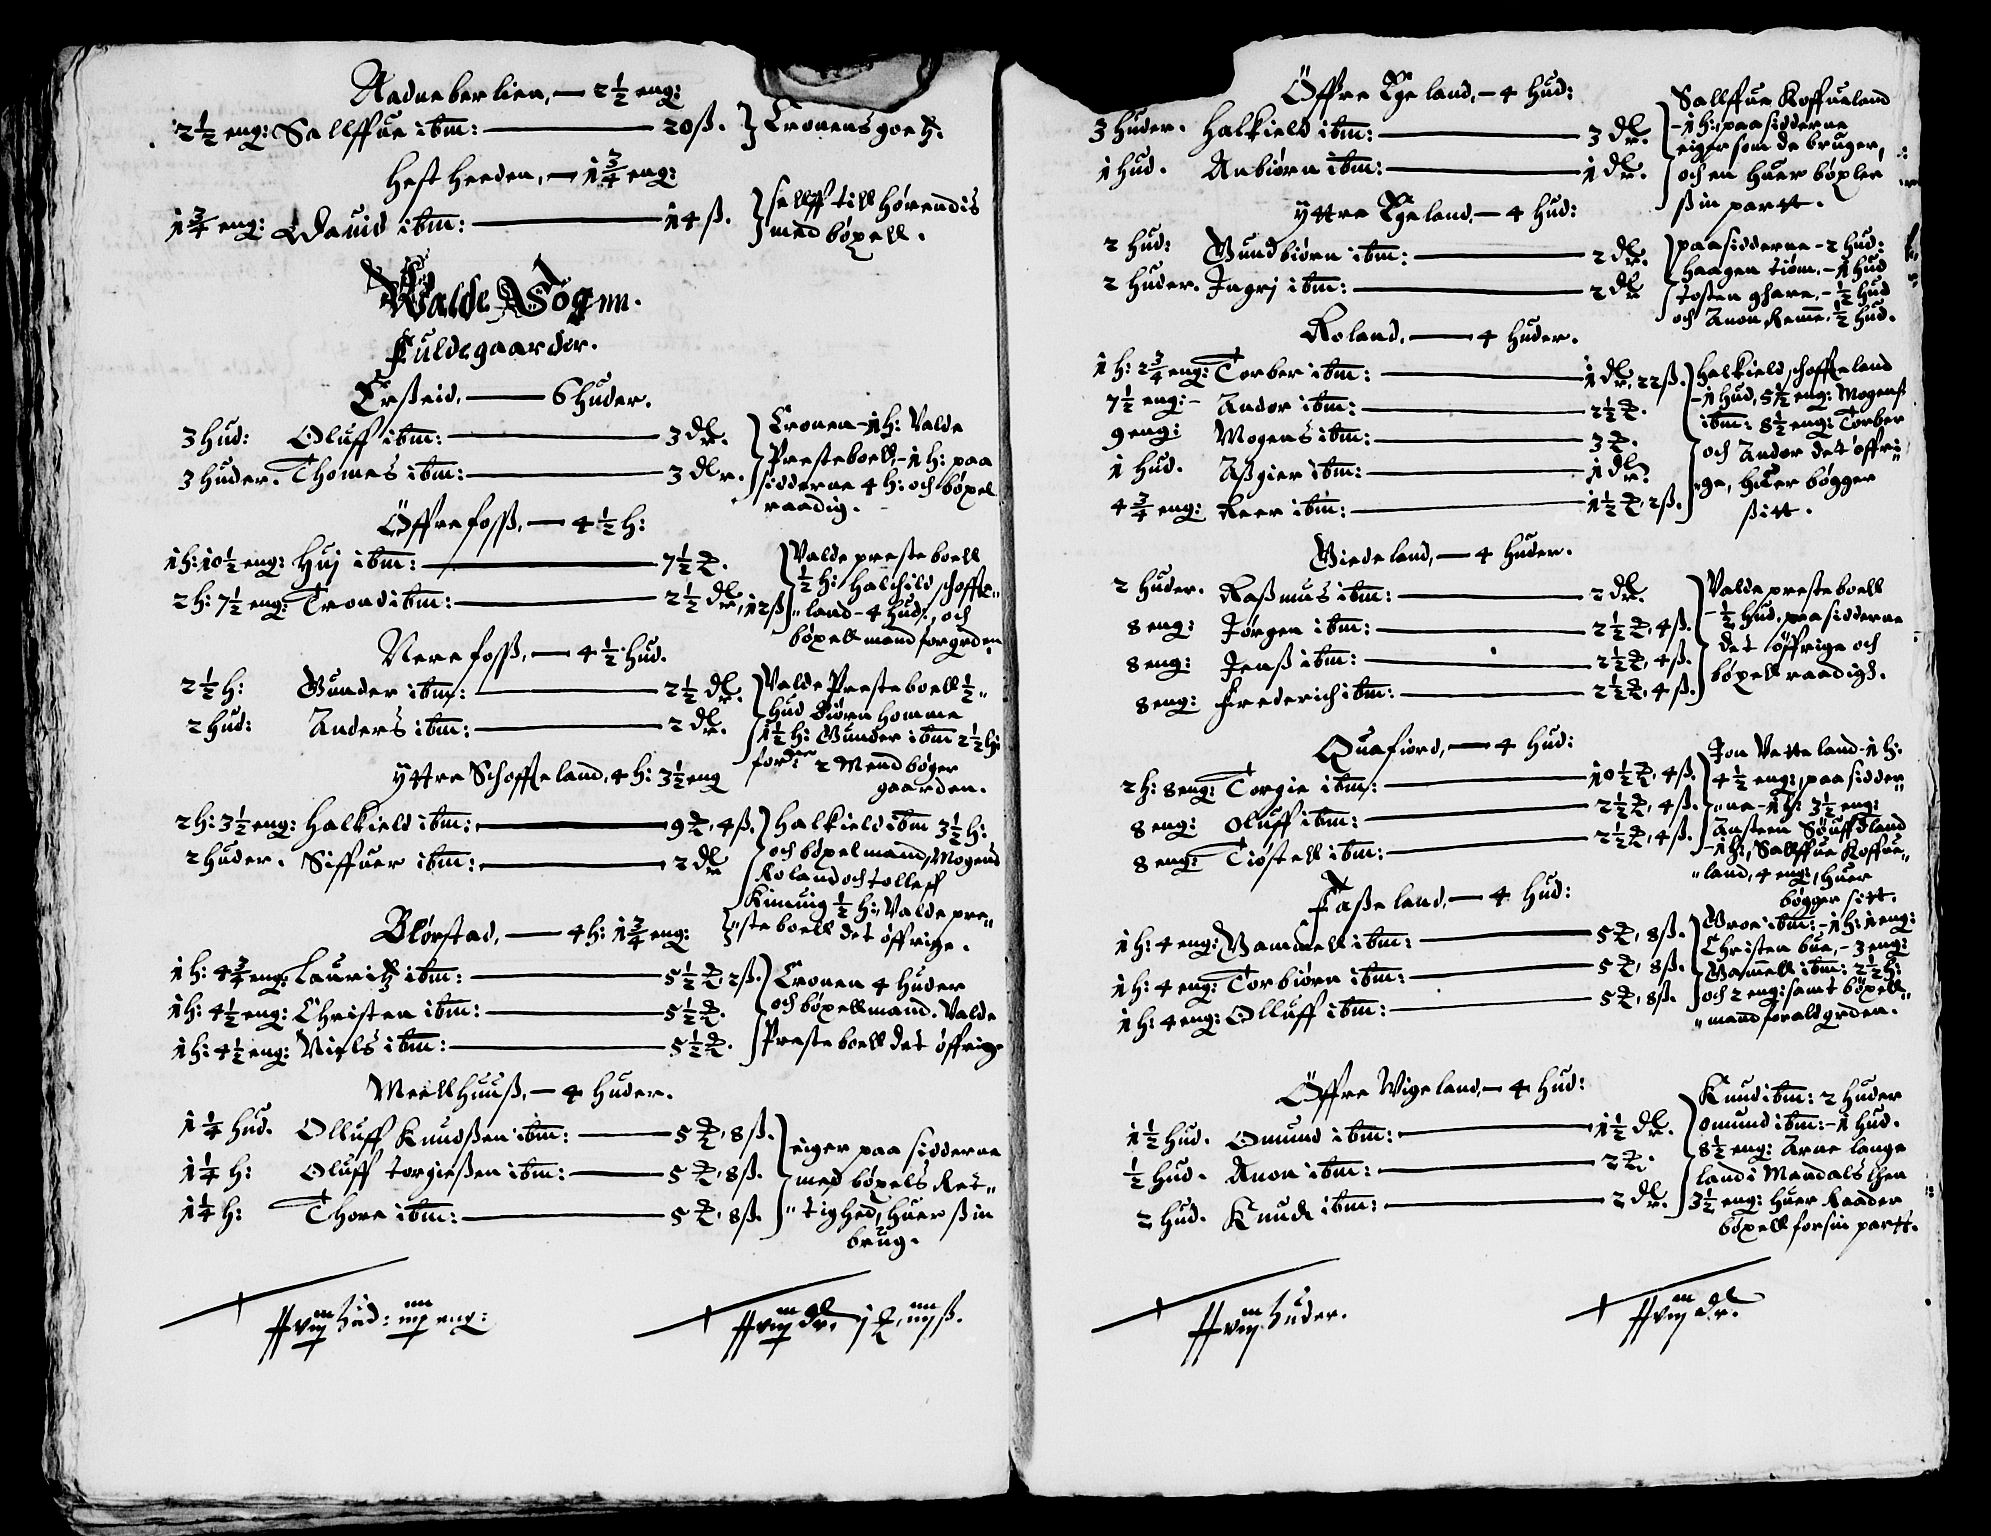 Aadneberlien, — 2½ eng:
2½ eng: Sallffue ibm: — 20ß. Cronens goetz.
Hest heeden, — 1¾ eng:
1¾ eng: Dauid ibm: — 14ß. sellff till hørendis
med bøxell.
Walde Sogen.
Fuldegaarder.
Erßeid, — 6 huder.
3 hud: Oluff ibm: — 3 dlr.
3 huder. Thomes ibm: — 3 dlr.
Cronen – 1 h: Valde
Presteboell, – 1 h: paa
sidderne 4 h: och bøxel
raadig.
Öffrefoss, — 4½ h:
1 h: 10½ eng: Huj ibm: — 7½ ort.
2 h: 7½ eng: Trond ibm: — 2½ dlr, 12ß
Valde presteboell
½ h: Halchild schoffte„
„land – 4 hud:, och
bøxellmand forgrden
Nerefoss, — 4½ hud.
2½ h: Gunder ibm: — 2½ dlr.
2 hud: Anders ibm: — 2 dlr.
Valde Presteboell ½„
hud Biørn homme
1½ h: Gunder ibm 2½ h:
fordr 2 Mend bøger
gaarden.
yttre Schoffteland, 4 h: 3½ eng
2 h: 3½ eng: Halkield ibm: — 9 ort, 4ß.
2 huder. Siffuer ibm: — 2 dlr
Halkield ibm 3½ h:
och bøxelmand, Mogens
Roland och Tolleff
Kinnig ½ h:, Valde pre„
„steboell det øffrige.
Blørstad, — 4 h: 1¾ eng:
1 h: 4¾ eng: Lauritz ibm: — 5½ ort, 2ß.
1 h: 4½ eng: Christen ibm: — 5½ ort.
1 h: 4½ eng: Niels ibm: — 5½ ort.
Cronen 4 huder
och bøxellmand. Valde
Presteboell det øffrige
Meellhuuß, — 4 huder.
1¼ hud. Olluff Knudßen ibm: — 5 ort, 8ß.
1¼ h: Oluff Torgießen ibm: — 5 ort, 8ß.
1¼ h: Thore ibm: — 5 ort, 8ß.
eiger paa sidderne
med bøxels Ret„
„tighed, huer ßin
brug.
hud: eng:
ß.
Öffre Egeland, — 4 hud:
3 huder. Halkield ibm: — 3 dlr.
1 hud. Anbiørn ibm: — 1 dlr.
Sallffue Koffueland
– 1 h:, paasidderne
eiger som de bruger,
och en huer bøxler
ßin partt.
yttre Egeland, — 4 hud:
2 hud: Gundbiørn ibm: — 2 dlr.
2 huder. Ingrj ibm: — 2 dlr
paasidderne – 2 hud:
haagen tiøm, – 1 hud
Tosten ghare, – ½ hud
och Anon Reme, ½ hud.
Roland, — 4 huder.
1 h: 2¾ eng: Torber ibm: — 1 dlr, 22ß.
7½ eng: – Andor ibm: — 2½ ort.
9 eng: Mogens ibm: — 3 ort.
1 hud. Aßgier ibm: — 1 dlr
4¾ eng: Reer ibm: — 1½ ort, 2ß.
Halkield schoffteland
– 1 hud, 5½ eng: Mogens
ibm: 8½ eng: Torber
och Andor det øffri„
„ge, huer bøgger
ßitt.
Wiedeland, — 4 huder.
2 huder. Raßmus ibm: — 2 dlr.
8 eng: Jørgen ibm: — 2½ ort, 4ß.
8 eng: Jenß ibm: — 2½ ort, 4ß.
8 eng: Frederich ibm: — 2½ ort, 4ß.
Valde presteboell
– ½ hud, paasidderne
det øffrige och
bøxell raadigh.
Quafiord, — 4 hud:
2 h: 8 eng: Torgie ibm: — 10½ ort, 4ß.
8 eng: Oluff ibm: — 2½ ort, 4ß.
8 eng: Tiøstell ibm: — 2½ ort, 4ß.
Jon Vetteland – 1 h:
4½ eng:, paasidder„
„ne – 1 h: 3½ eng:
Ansteen
– 1 h:, Sallffue Koffue„
„land, 4 eng:, huer
bøgger sitt.
Faßeland, — 4 hud:
1 h: 4 eng: Vammell ibm: — 5 ort, 8ß.
1 h: 4 eng: Torbiørn ibm: — 5 ort, 8ß.
1 h: 4 eng: Olluff ibm: — 5 ort, 8ß.
Groe ibm: – 1 h: 1 eng:
Christen bue, – 3 eng:
Vamell ibm: 2½ h:
och 2 eng: samt bøxell„
„mand for ald grden.
Öffre Wigeland, — 4 hud:
1½ hud. Omund ibm: — 1½ dlr.
½ hud. Anon ibm: — 2 ort.
2 hud. Knud ibm: — 2 dlr.
Knud ibm: 2 huder
Omund ibm: – 1 hud.
8½ eng: Arne lange
land i Mandals lhen
3½ eng: huer Raader
bøxell for sin partt.
huder.
dlr.